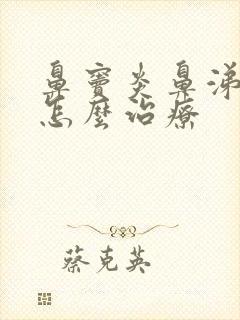 鼻竇炎鼻涕
怎麼治療
蔡克英